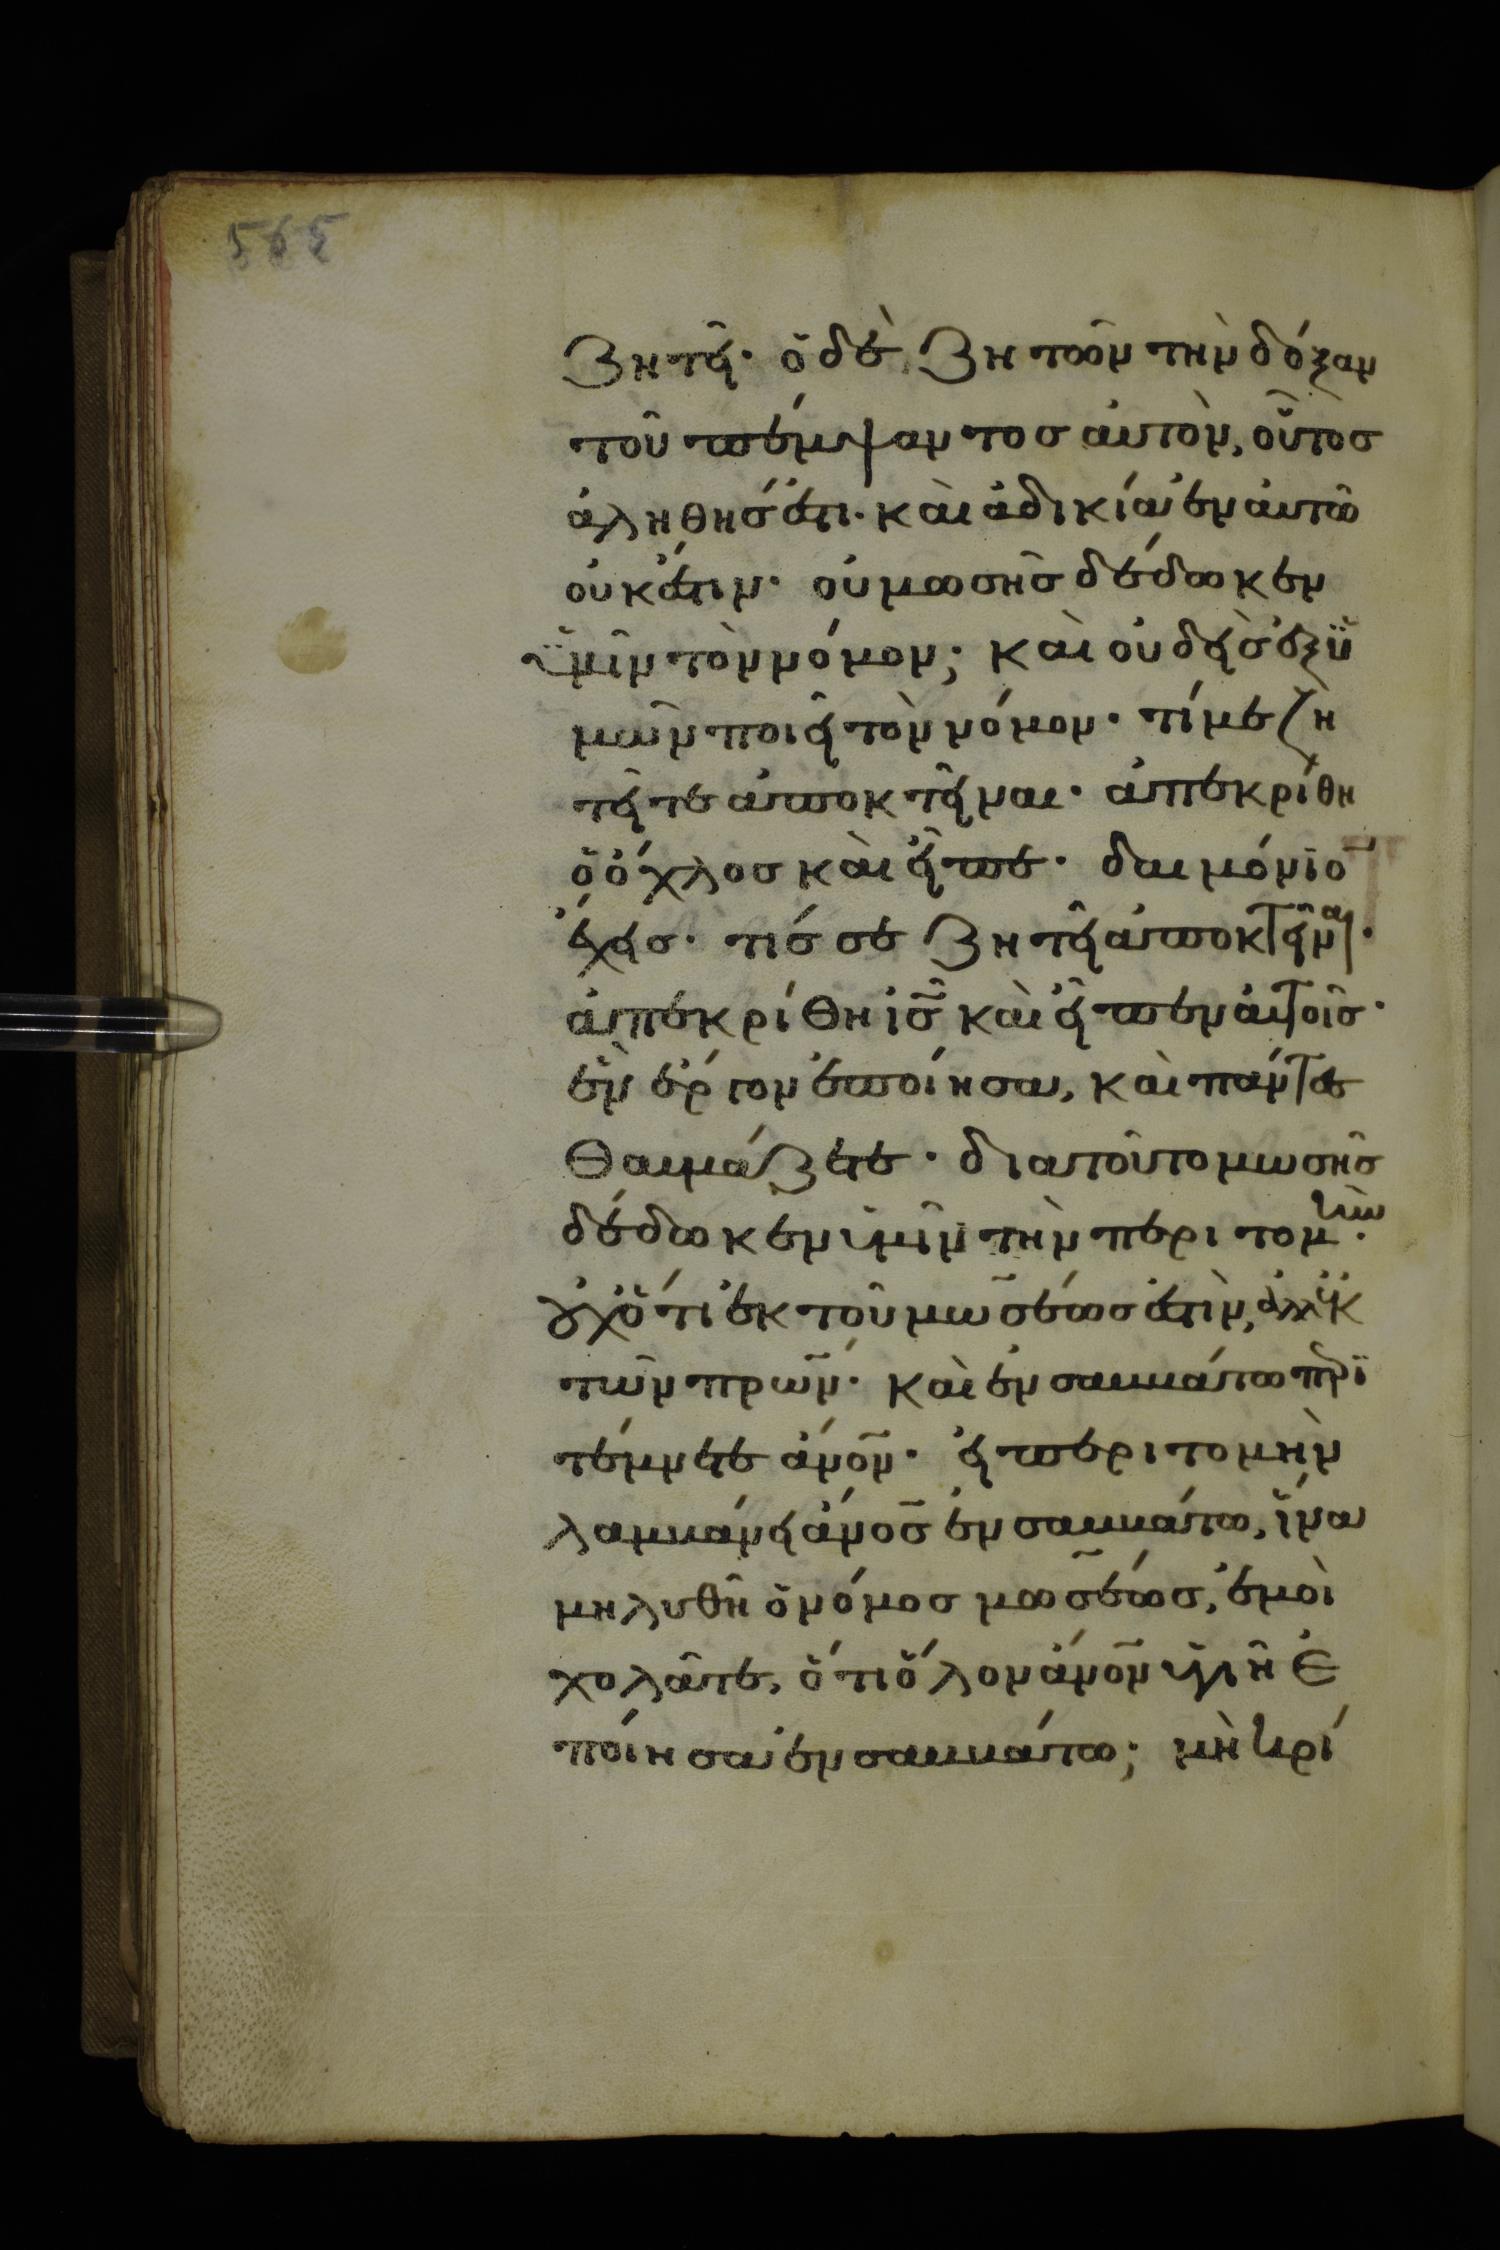 565
ζητεῖ· ὁ δὲ ζητῶν τὴν δόξαν
τοῦ πέμψαντος αὐτὸν, οὗτος
ἀληθής ἐστι· καὶ ἀδικία ἐν αὐτῶ
οὐκ ἔστιν· οὐ μωσῆς δέδωκεν
ὑμῖν τὸν νόμον; καὶ οὐδεὶς ἐξ ὑ
μῶν ποιεῖ τὸν νόμον· τί με ζη
τεῖτε ἀποκτεῖναι· ἀπεκρίθη
ὁ ὄχλος καὶ εἶπε· δαιμόνιο̅
ἔχεις· τίς σε ζητεῖ ἀποκτεῖναι·
ἀπεκρίθη ἰ̅ς̅ καὶ εἶπεν αὐτοῖς·
ἓν ἔργον ἐποίησα, καὶ πάντες
θαυμάζετε· διατοῦτο μωσῆς
δέδωκεν ὑμῖν τὴν περιτομὴν·
οὐχ ὅτι ἐκ τοῦ μωσέως ἐστὶν, ἀλλ' ἐκ
τῶν πρ̅ων· καὶ ἐν σαββάτω πε̅ρι
τέμνετε ἄν̅ον· εἰ περιτομὴν
λαμβάνει ἄν̅ος ἐν σαββάτω, ἵνα
μὴ λυθῆ ὁ νόμος μωσέως, ἐμοὶ
χολᾶτε, ὅτι ὅλον ἄν̅ον ὑγιῆ ἐ
ποίησα ἐν σαββάτω; μὴ κρί